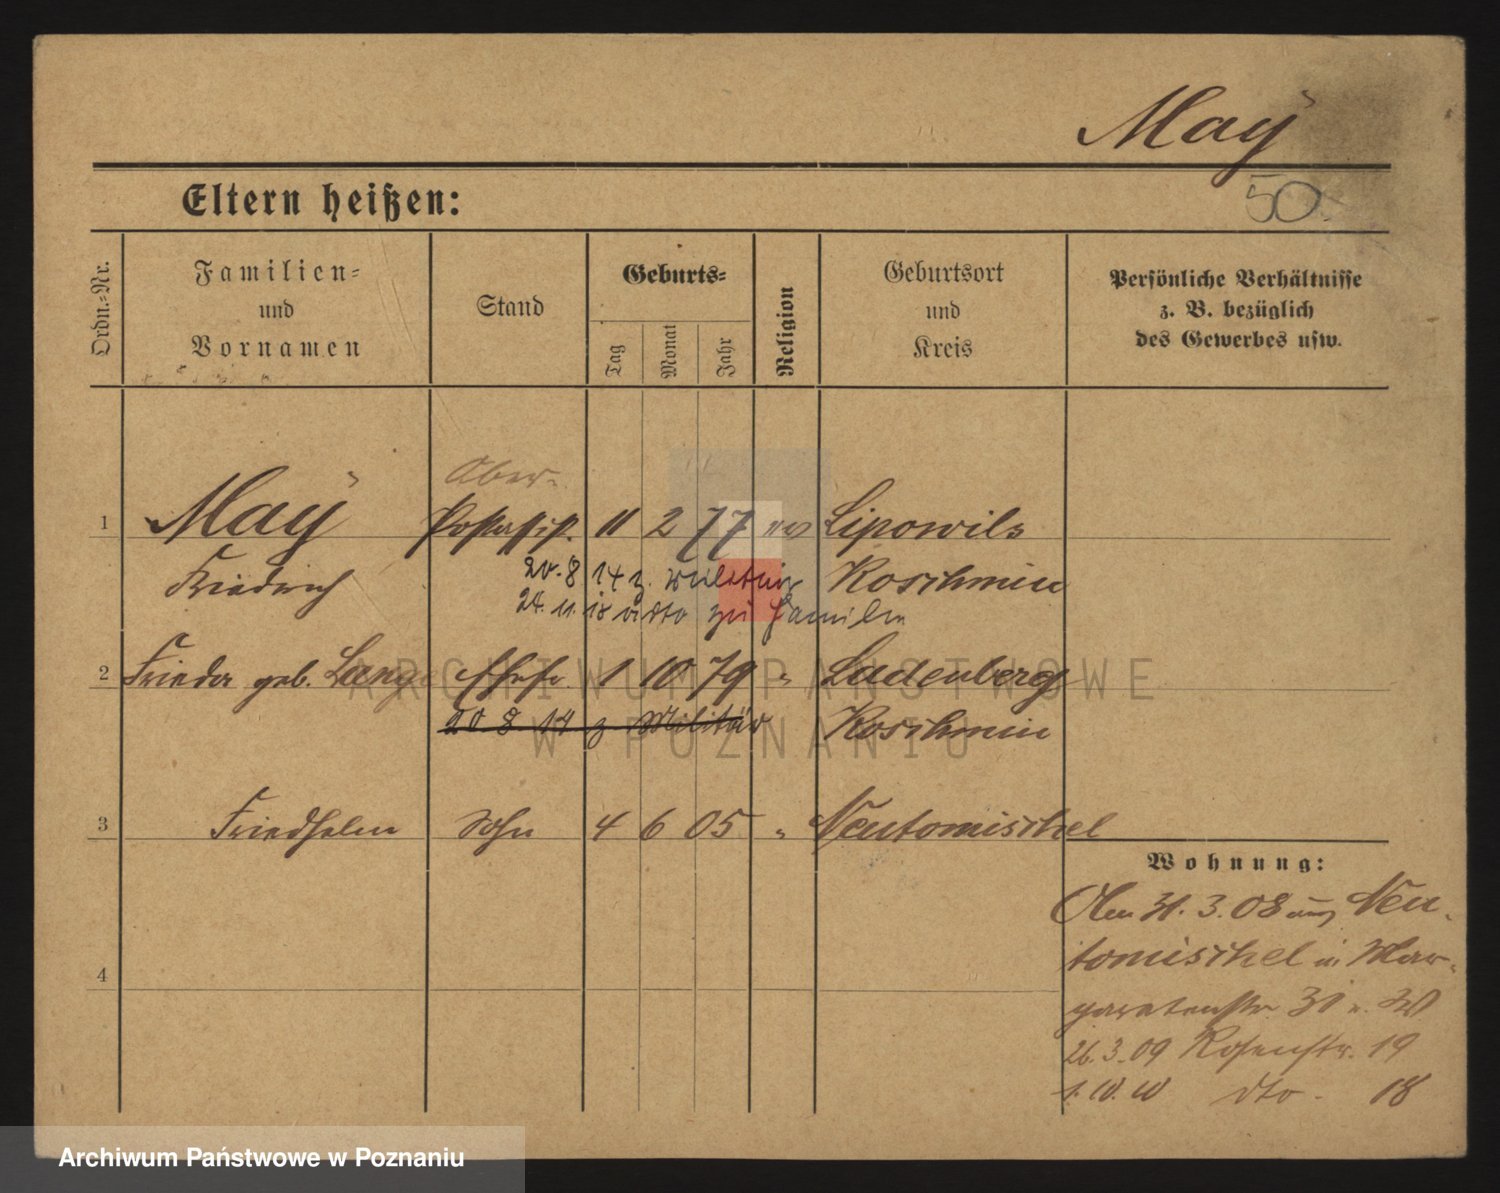 May
50.
Eltern heißen:
Ordn.-Nr.
Familien-
und
Vornamen
Stand
Geburts-
Tag
Monat
Jahr
Religion
Geburtsort
und
Kreis
Persönliche Verhältnisse
z. B. bezüglich
des Gewerbes usw.
Ober-
1 May Postassist. 11 2 77 ev Lipowitz
Friedrich Koschmin
20. 8 14 z. Militär
24. 11. 18 zu Familie
2 Frieda geb. Lange Ehefr. 1 10 79 " Ladenberg
20. 8. 14 z Militär Koschmin
3 Friedhelm Sohn 4 6 05 " Neutomischel
4
Wohnung:
Am 31. 3. 08 aus Neu-
tomischel in Mar-
garetenstr 30
26. 3. 09 Rosenstr. 19
1. 10. 10 dto. 18
ARCHIWUM PAŃSTWOWE
W POZNANIU
Archiwum Państwowe w Poznaniu